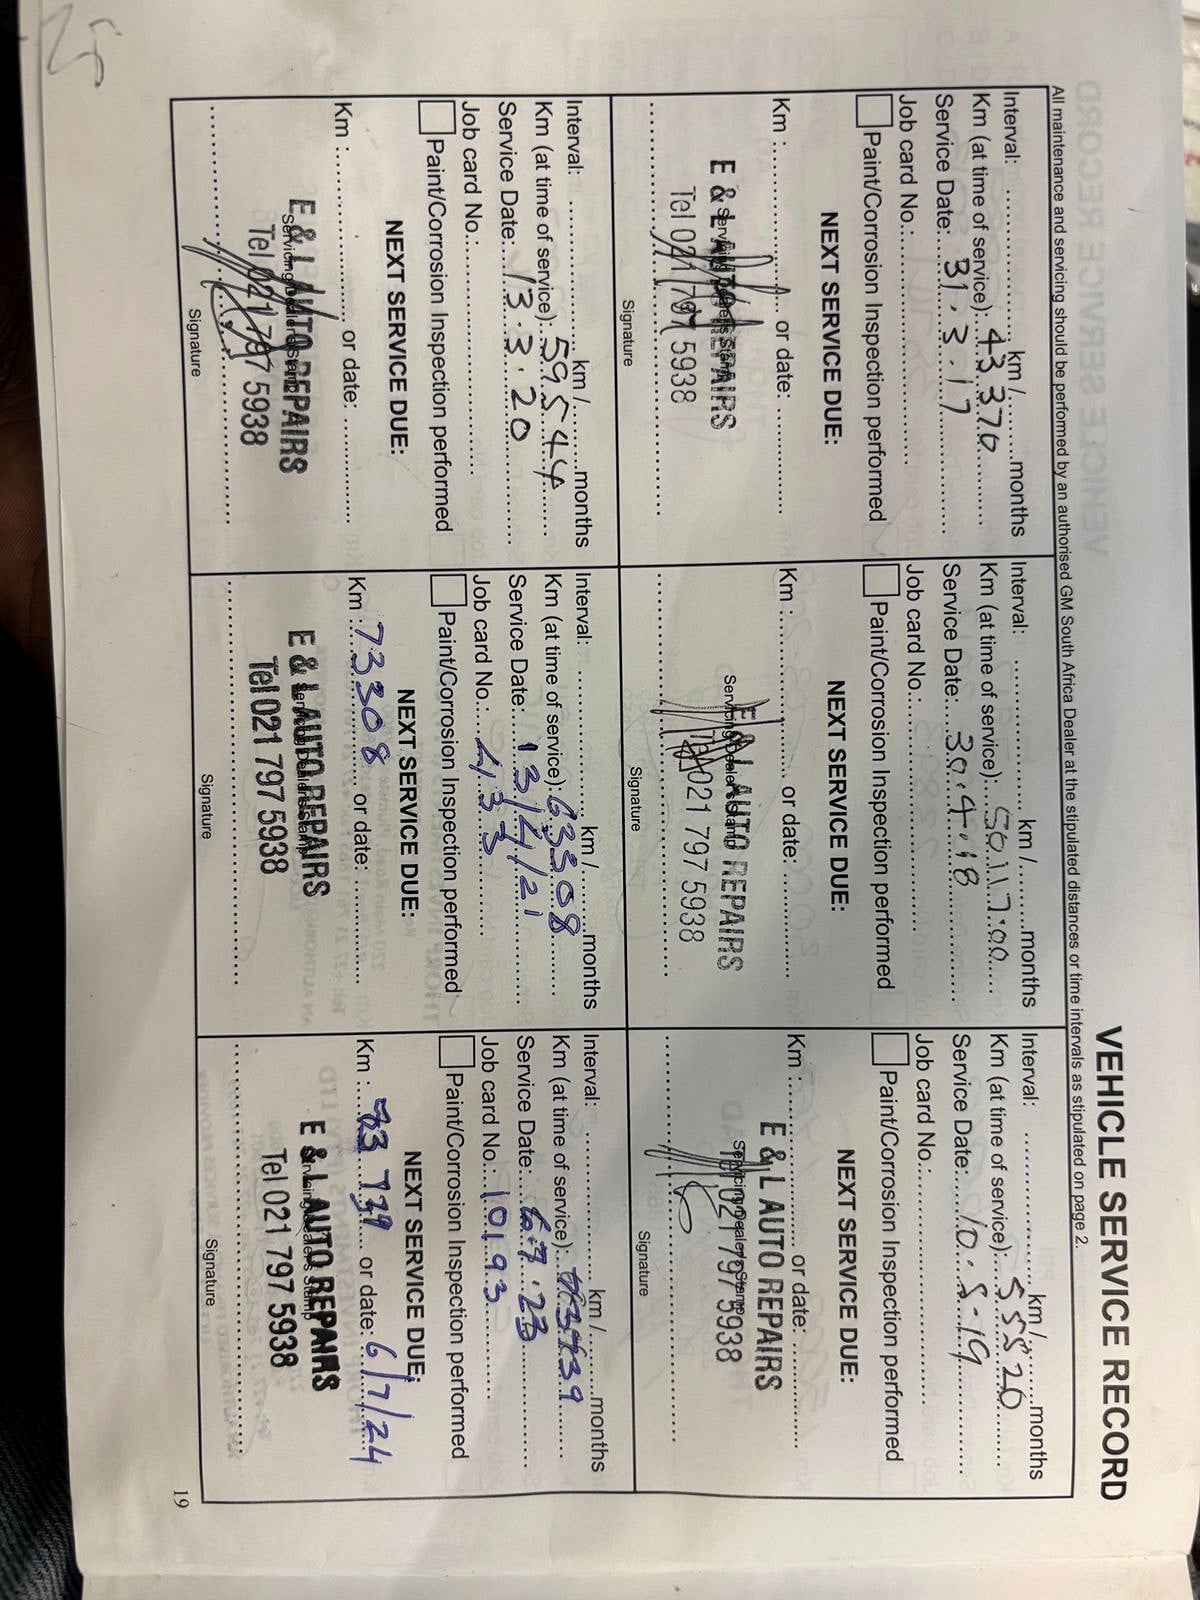 VEHICLE SERVICE RECORD
All maintenance and servicing should be performed by an authorised GM South Africa Dealer at the stipulated distances or time intervals as stipulated on page 2.
Interval: .................. km / ......... months
Km (at time of service): 43 376
Service Date: 31.3.17
Job card No.:
Paint/Corrosion Inspection performed
NEXT SERVICE DUE:
Km : .................. or date: ..................
E & L AUTO REPAIRS
Servicing Dealer's Stamp
Tel 021 797 5938
Signature
Interval: .................. km / ......... months
Km (at time of service): 50117.00
Service Date: 30.4.18
Job card No.:
Paint/Corrosion Inspection performed
NEXT SERVICE DUE:
Km : .................. or date: ..................
E & L AUTO REPAIRS
Servicing Dealer's Stamp
Tel 021 797 5938
Signature
Interval: .................. km / ......... months
Km (at time of service): 55520
Service Date: 10.5-19
Job card No.:
Paint/Corrosion Inspection performed
NEXT SERVICE DUE:
Km : .................. or date: ..................
E & L AUTO REPAIRS
Servicing Dealer's Stamp
Tel 021 797 5938
Signature
Interval: .................. km / ......... months
Km (at time of service): 59544
Service Date: 13.3.20
Job card No.:
Paint/Corrosion Inspection performed
NEXT SERVICE DUE:
Km : .................. or date: ..................
E & L AUTO REPAIRS
Servicing Dealer's Stamp
Tel 021 797 5938
Signature
Interval: .................. km / ......... months
Km (at time of service): 63308
Service Date: 13/4/21
Job card No.: 4133
Paint/Corrosion Inspection performed
NEXT SERVICE DUE:
Km : 73308 or date: ..................
E & L AUTO REPAIRS
Servicing Dealer's Stamp
Tel 021 797 5938
Signature
Interval: .................. km / ......... months
Km (at time of service):
Service Date: 6.7.23
Job card No.: 10193
Paint/Corrosion Inspection performed
NEXT SERVICE DUE:
Km : 83 739 or date: 6/7/24
E & L AUTO REPAIRS
Servicing Dealer's Stamp
Tel 021 797 5938
Signature
19